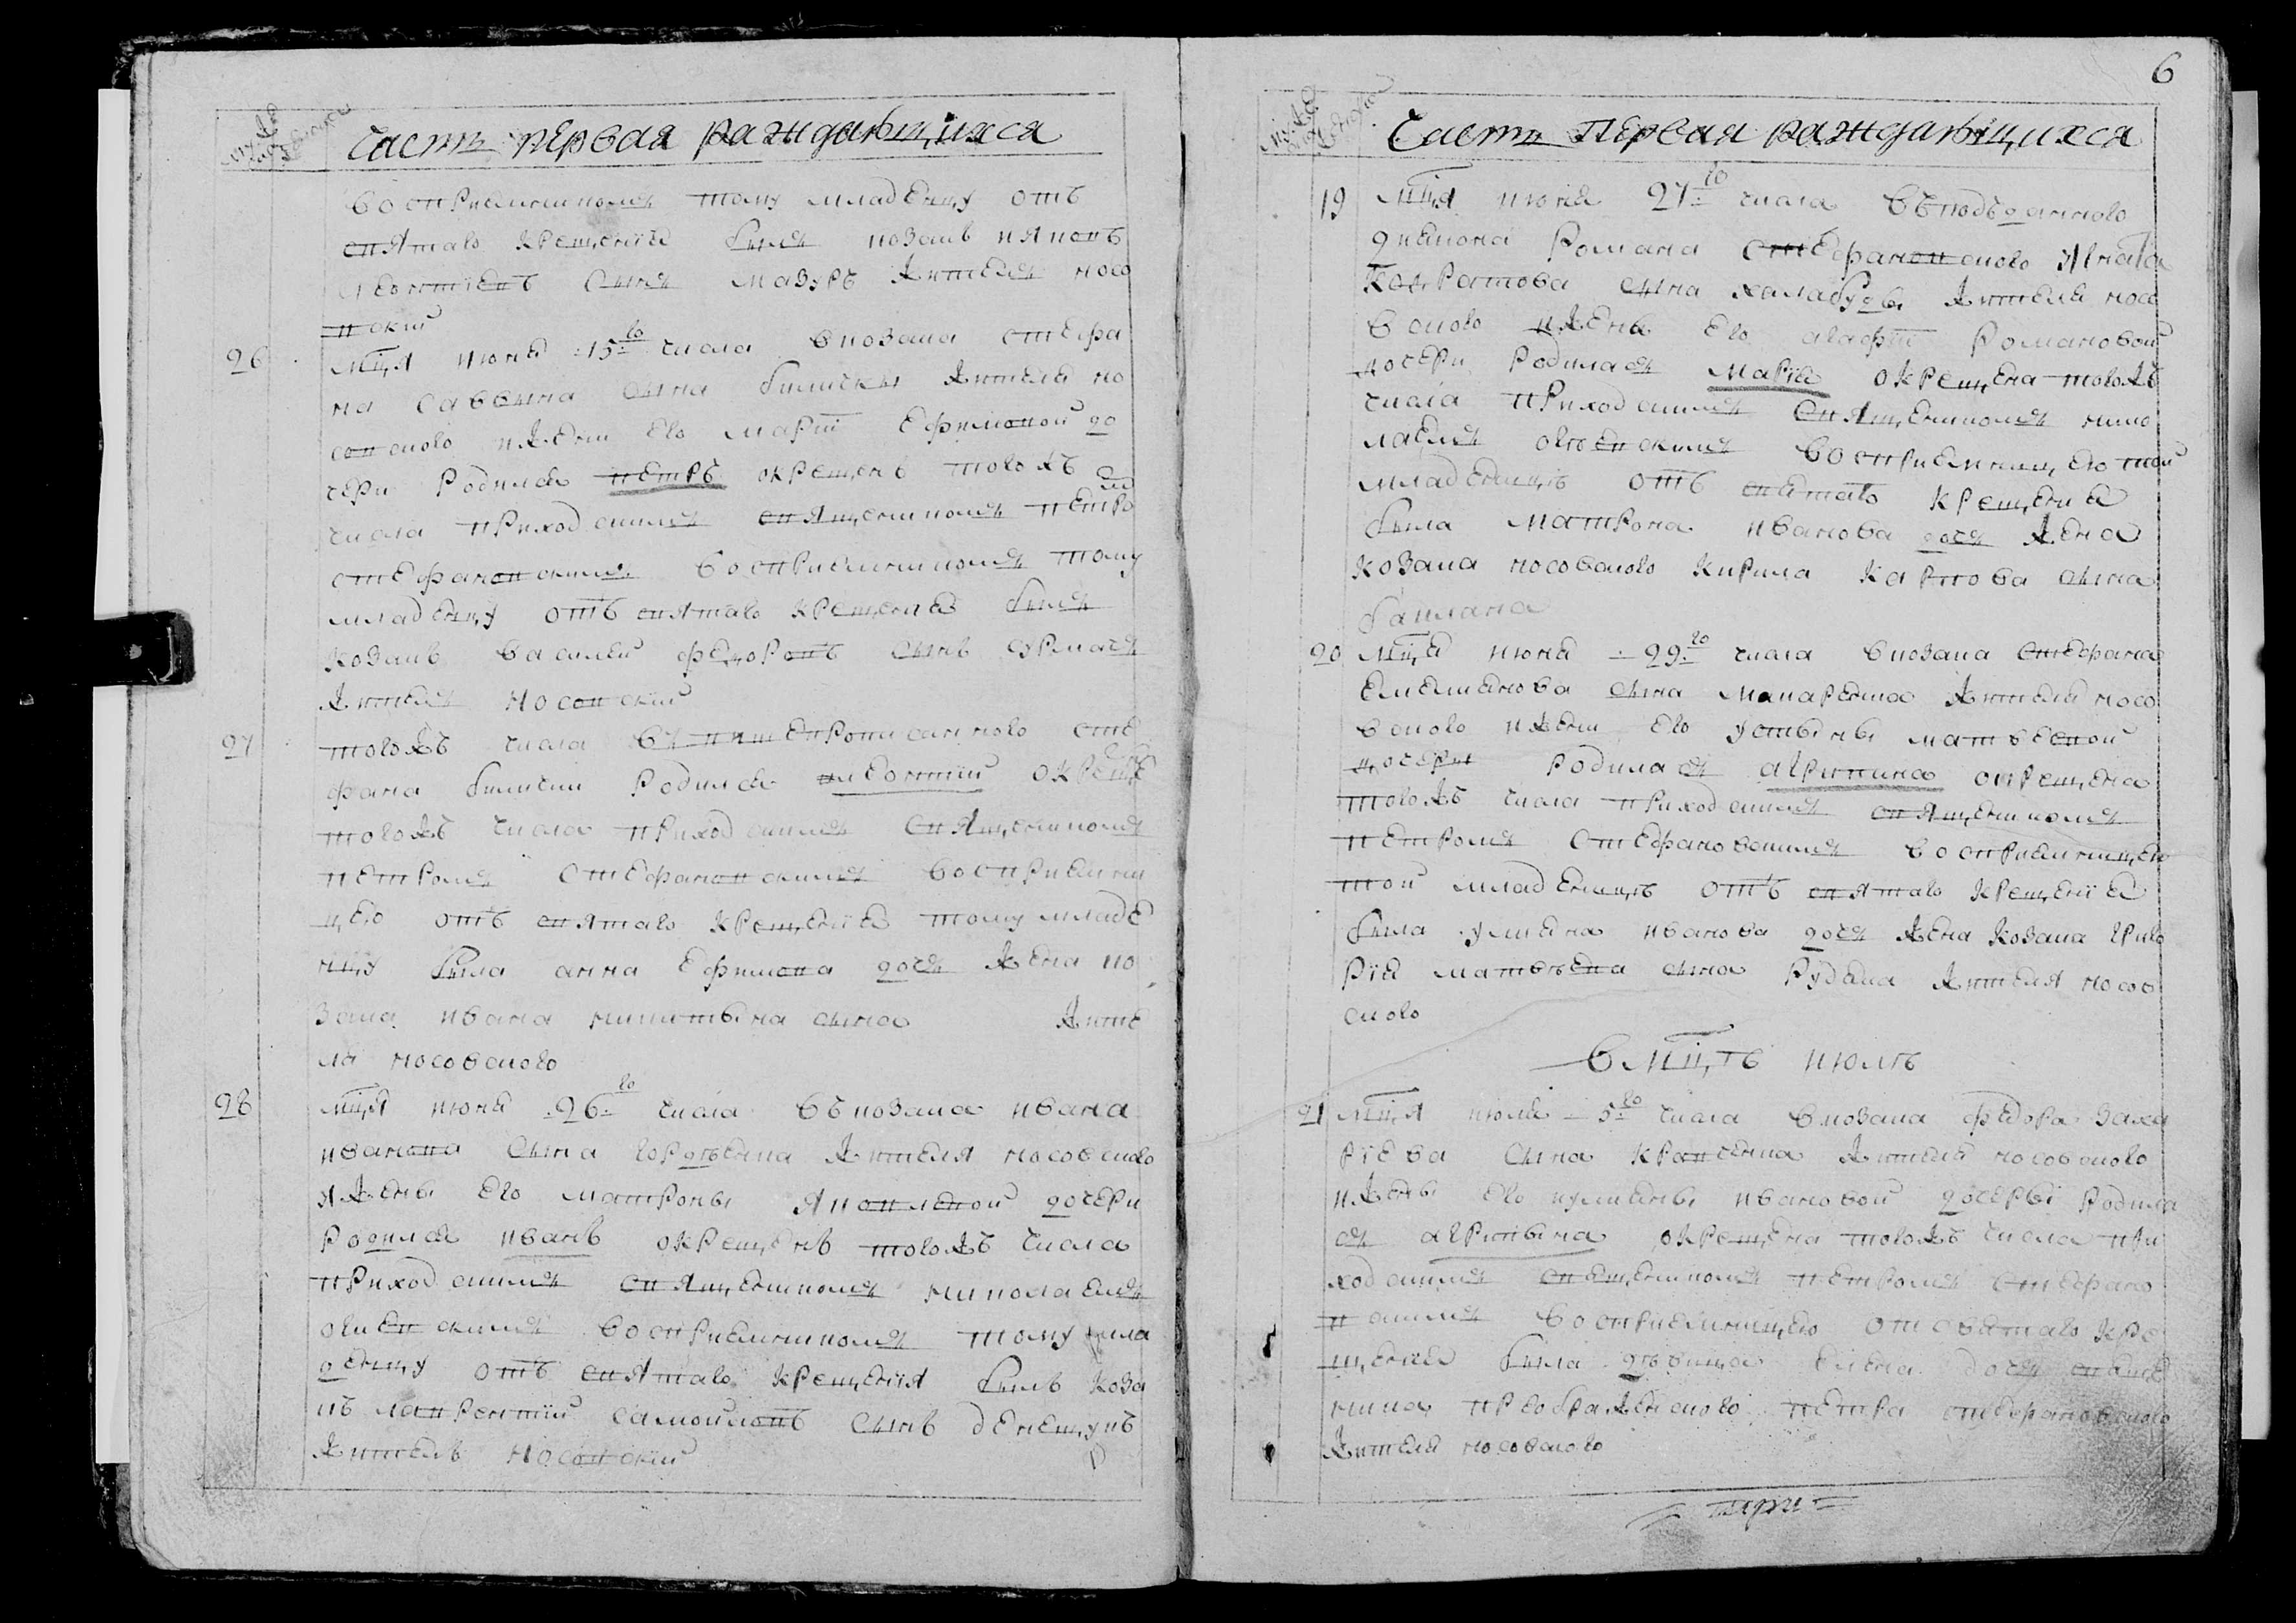 Часть первая раждающихся
восприемникомъ тому младенцу отъ
святаго крещенія былъ козакъ яковъ
леонтіевъ сынъ мазуръ житель носо
вскій
26 мца июня 15го числа в козака стефа
на саввина сына билички жителя но
совского и жены его маріи ефимовой до
чери родился петръ окрещенъ тогожъ
числа приходскимъ священникомъ петро
стефановскимъ восприемникомъ тому
младенцу отъ святаго крещения былъ
козакъ василей федоровъ сынъ
житель носовскій
27 тогожъ числа вышепрописанного сте
фана билички родился леонтий окреще
тогожъ числа приходскимъ священникомъ
петромъ стефановскимъ восприемни
цею отъ святаго крещенія тому младе
нцу была анна ефимова дочь жена ко
зака ивана никитына сына жите
ля носовского
28 мця июня 26го числа въ козака ивана
иванова сына гордѣенка жителя носовского
и жены его матроны яковлевой дочери
родился иванъ окрещенъ тогожъ числа
приходскимъ священникомъ николаемъ
огиевскимъ восприемникомъ тому мла
денцу отъ святаго крещенія былъ коза
къ лаврентий самойловъ сынъ
житель носовскій
6
Часть Первая раждающихся
19 мця июня 27го числа въ подъданного
дьякона романа стефановского игната
кондратова сына жителя носо
вского и жены его агафіи романовой
дочери родилась марія окрещена тогожъ
числа приходскимъ священникомъ нико
лаемъ огиевскимъ восприемницею той
младеницѣ отъ святаго крещения
была матрона иванова дочь жена
козака носовского кирила карпова сына
баклана
20 мця июня 29го числа в козака стефана
емельянова сына макаренка жителя носо
вского и жены его устины матвеевой
дочери родилась агрипина окрещена
тогожъ числа приходскимъ священникомъ
петромъ стефановскимъ восприемницею
той младеницѣ отъ святаго крещенія
была улияна иванова дочь жена козака григо
рія матвѣева сына рудака жителя носов
ского
в мцѣ июлѣ
21 мця июля 5го числа в козака федора заха
рієва сына кравченка жителя носовского
и жены его иулияны ивановой дочеры родила
сь агрипына окрещена тогожъ числа при
ходскимъ священникомъ петромъ стефано
вскимъ восприемницею от святаго кре
щения была дѣвица елена дочь свяще
нника преображенского петра стефановского
жителя носовского